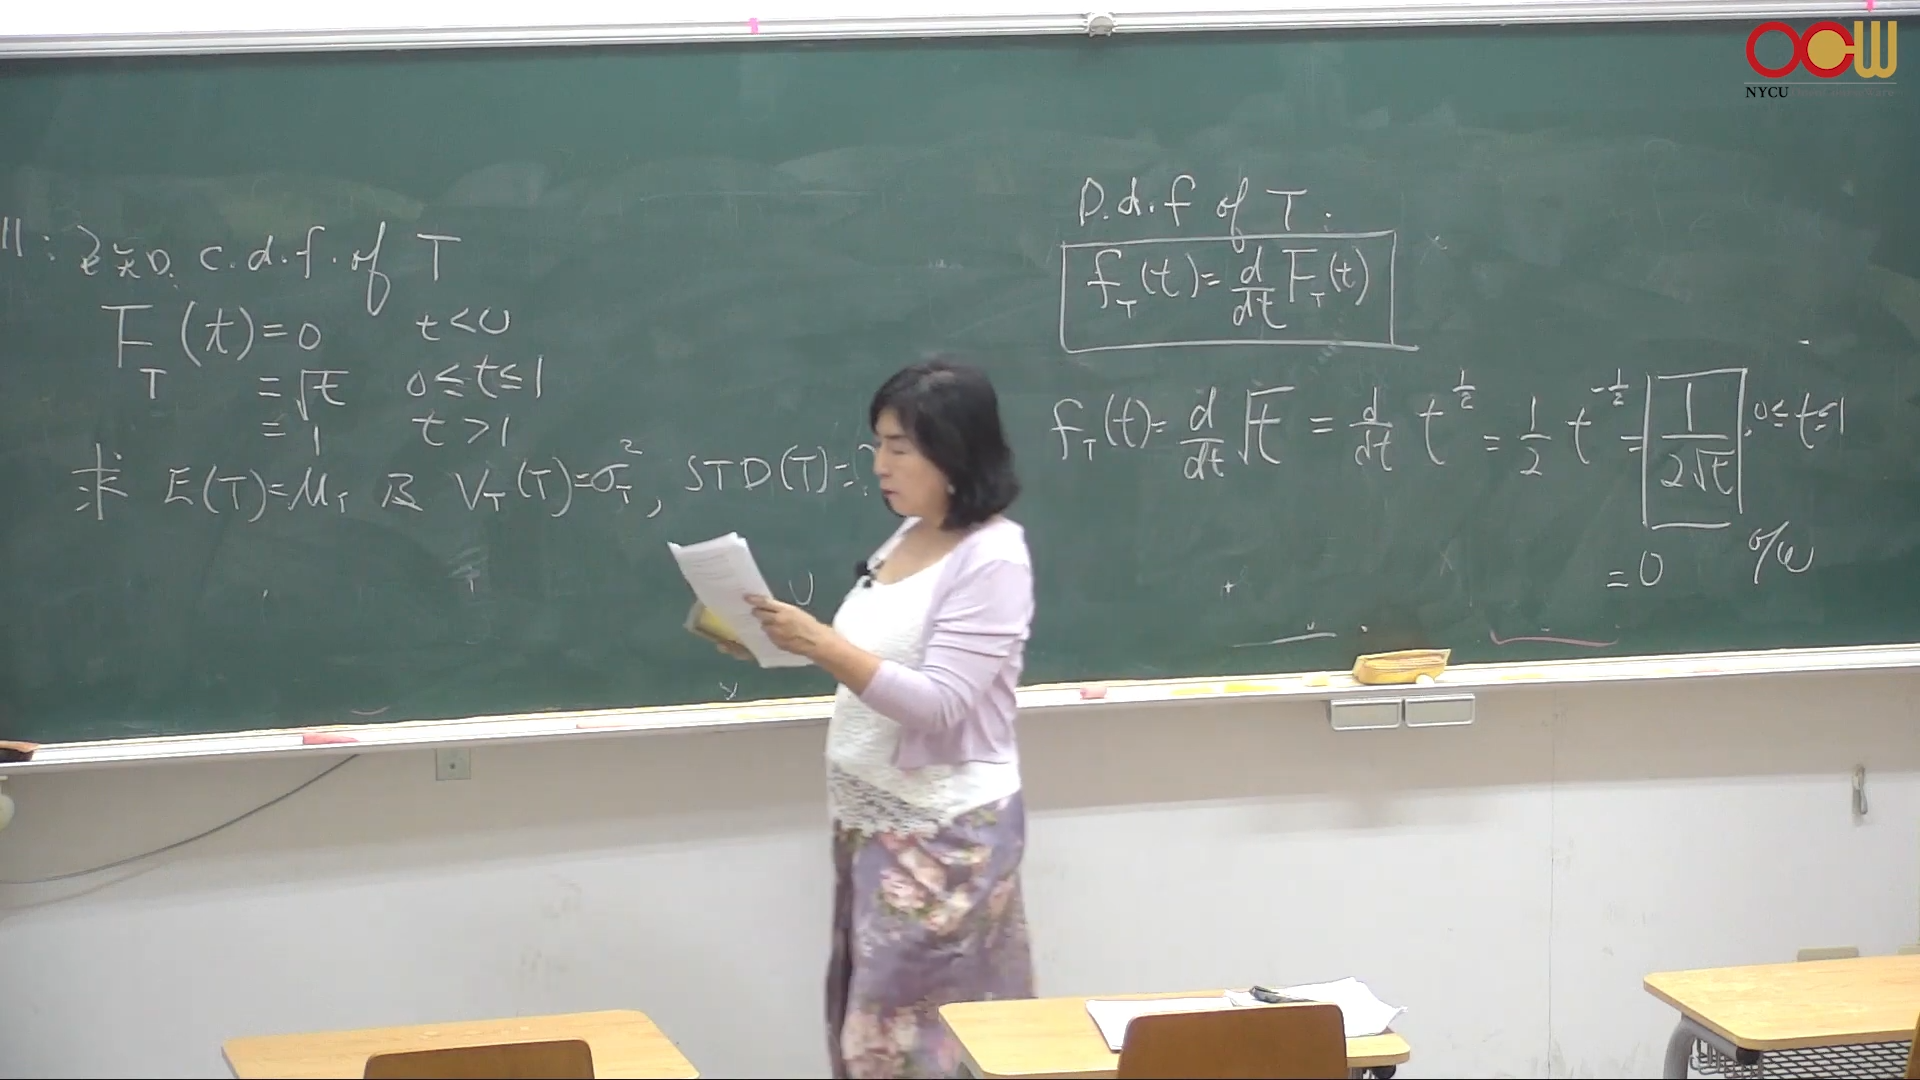 11: 已知 c.d.f. of T
F_T(t) = 0 t<0
= √t 0≤t≤1
= 1 t>1
求 E(T)=μ_T 及 V_T(T)=σ_T^2, STD(T)=?
P.d.f of T:
f_T(t) = d/dt F_T(t)
f_T(t) = d/dt √t = d/dt t^{1/2} = 1/2 t^{-1/2} = 1/(2√t), 0≤t≤1
= 0 o/w
OCW
NYCU